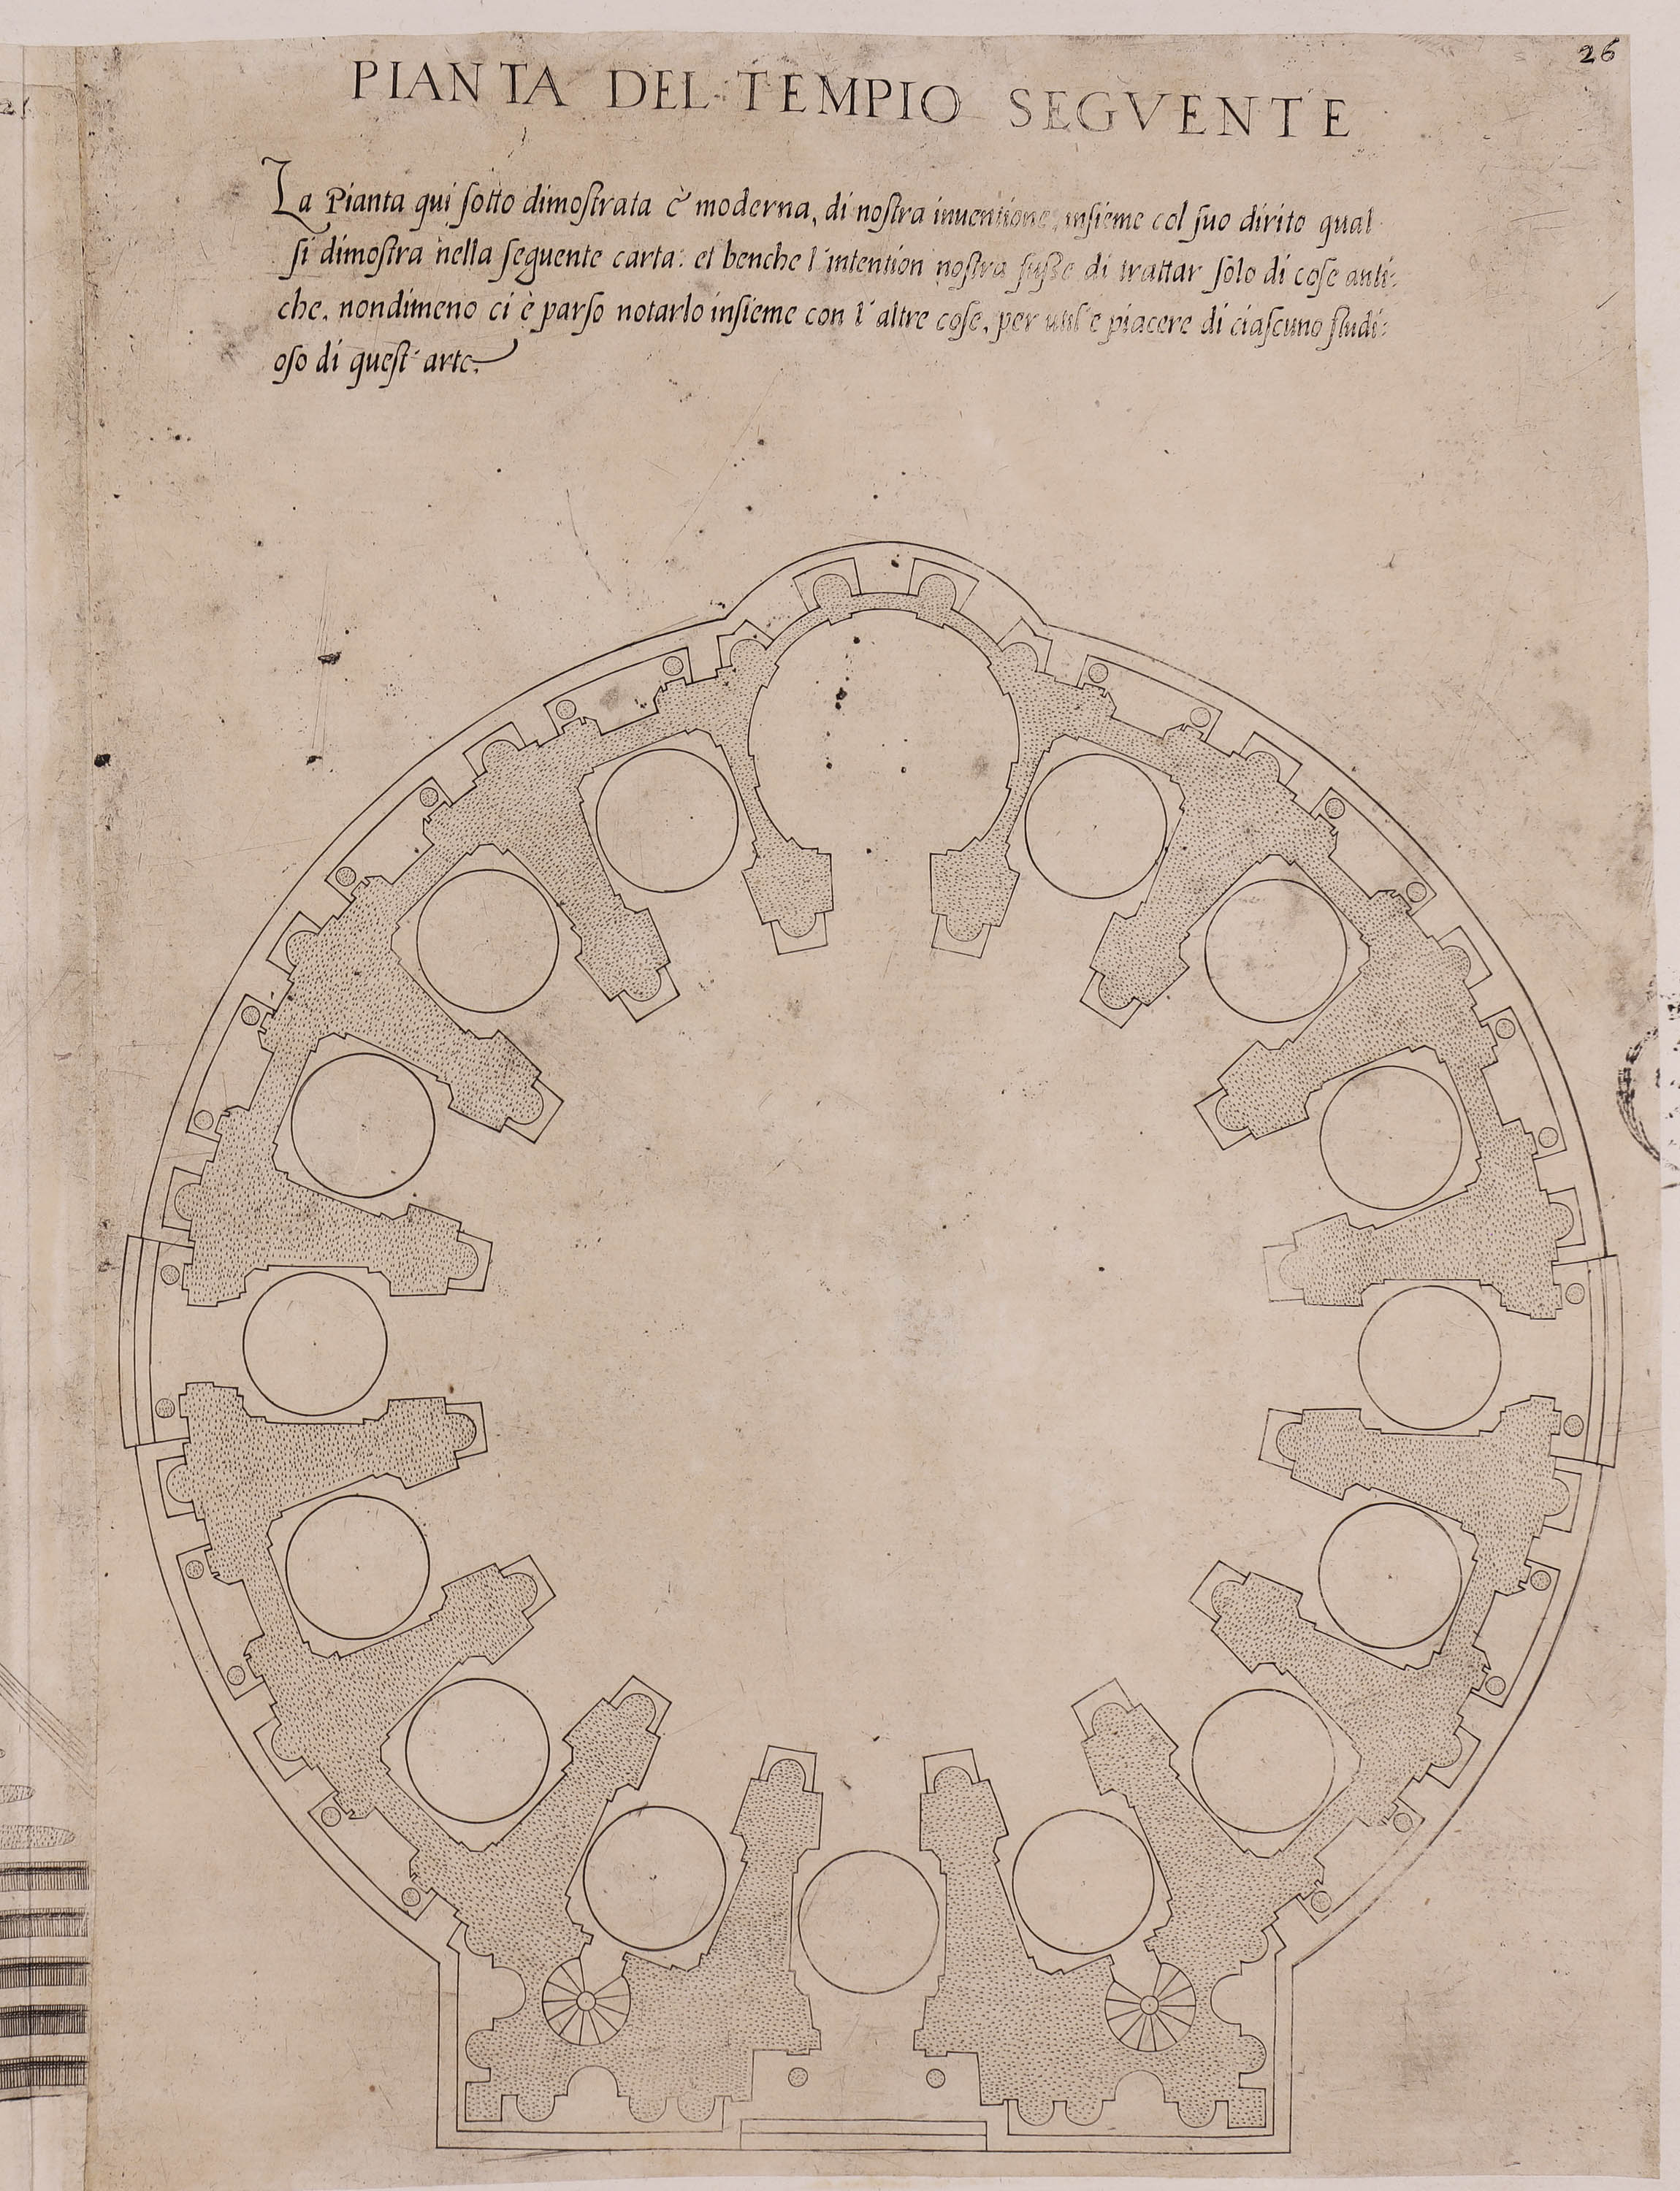 26
PIANTA DEL TEMPIO SEGVENTE
La Pianta qui ſotto dimoſtrata è moderna, di noſtra inuentione, inſieme col ſuo dirito qual
ſi dimoſtra nella ſeguente carta: et benche l'intention noſtra fuſſe di trattar ſolo di coſe anti:
che, nondimeno ci è parſo notarlo inſieme con l'altre coſe, per util'e piacere di ciaſcuno ſtudi:
oſo di queſt'arte.